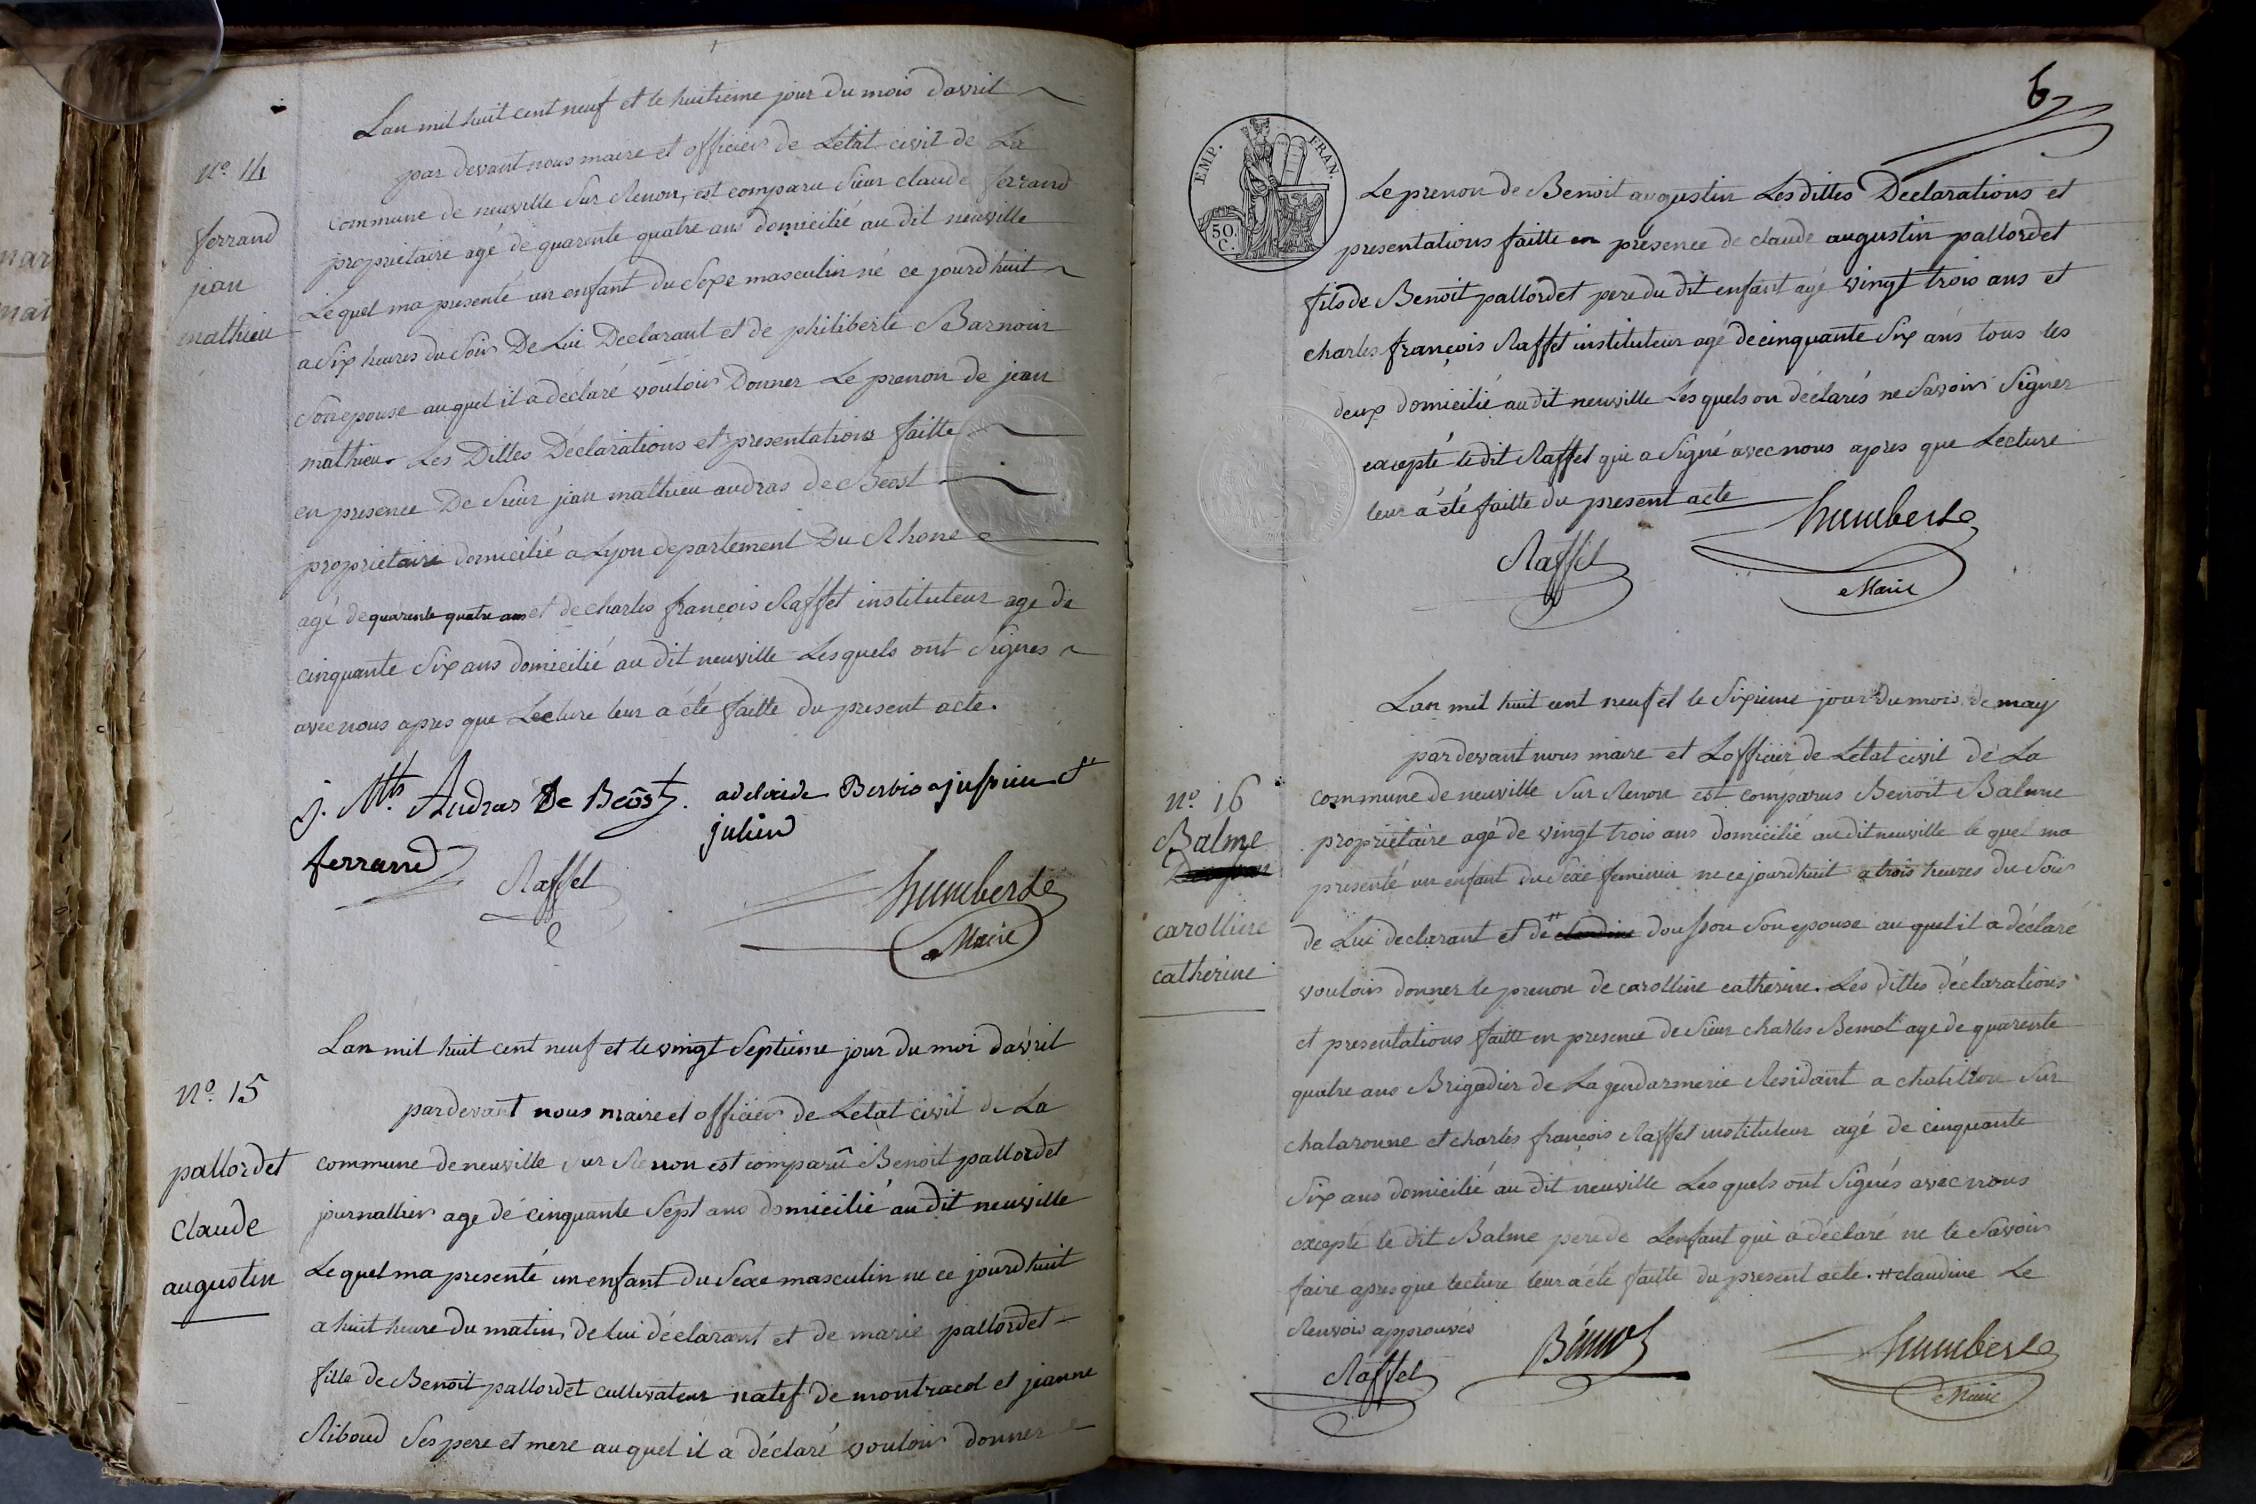 Lan mil huit cent neuf et le huitieme jour du mois davril
par devant nous maire et officier de Letat civil de La
N.o 14
commune de neuville Sur Renon, est comparu Sieur claude ferrand
ferrand
proprietaire agé de quarente quatre ans domicilié au dit neuville
jean
Lequel ma presenté un enfant du Sexe masculin né ce jourdhuit
mathieu
a Six heures du Soir De Lui Declarant et de philiberte Barnouin
Son epouse auquel il a déclaré vouloir Donner Le prenon de jean
mathieu. Les Dittes Déclarations et presentations faitte
en presence De Sieur jean mathieu audras de Beost
proprietaire domicilié a Lyon departement Du Rhone
agé de quarente quatre ans et de charles françois Raffet instituteur agé de
cinquante Six ans domicilié au dit neuville Lesquels ont Signes
avec nous apres que Lecture leur a été faitte du present acte.
j. Mth Audras De Beost. adelaide Berbis
julien
ferrand Raffet humbert
Maire
Lan mil huit cent neuf et le vingt Septieme jour du moi davril
N.o 15
pardevant nous maire et officier de Letat civil de La
pallordet
commune de neuville Sur Renon est comparû Benoit pallordet
claude
journallier age de cinquante Sept ans domicilié audit neuville
augustin
Lequel ma presenté un enfant du Sexe masculin ne ce jourdhuit
a huit heure du matin, de lui déclarant et de marie pallordet
fille de Benoit pallordet cultivateur natif de montracol et jeanne
Riboud Ses pere et mere auquel il a déclaré vouloir donner
6
EMP. FRAN.
50. C.
Le prenon de Benoit augustin Les dittes Déclarations et
presentations faitte en présence de claude augustin pallordet
fils de Benoit pallordet pere du dit enfant agé vingt trois ans et
charles françois Raffet instituteur agé de cinquante Six ans tous les
deux domicilié au dit neuville Lesquels on déclarés ne Savoir Signer
excepté le dit Raffet qui a Signé avec nous apres que Lecture
leur a été faitte du present acte
humbert
Raffet
Maire
Lan mil huit cent neuf et le Sixieme jour du mois de may
pardevant nous maire et Lofficier de Letat civil de La
n.o 16
commune de neuville Sur Renon est comparus Benoit Balme
Balme
proprietaire agé de vingt trois ans domicilié audit neuville le quel ma
presenté un enfant du Sexe feminin ne ce jourdhuit a trois heures du Soir
carolline
de Lui declarant et de # claudine doufson Son epouse au quel il a déclaré
catherine
vouloir donner le prenon de carolline catherine. Les dittes déclarations
et presentations faitte en presence de Sieur charles Bemot age de quarente
quatre ans Brigadier de La gendarmerie Residant a chatillon Sur
chalaronne et charles françois Raffet instituteur agé de cinquante
Six ans domicilié au dit neuville Lesquels ont Signés avec nous
excepté le dit Balme pere de Lenfant qui a déclaré ne le Savoir
faire apres que lecture leur a été faitte du present acte. # claudine Le
Renvois approuvés
Raffet Bémot humbert
Maire